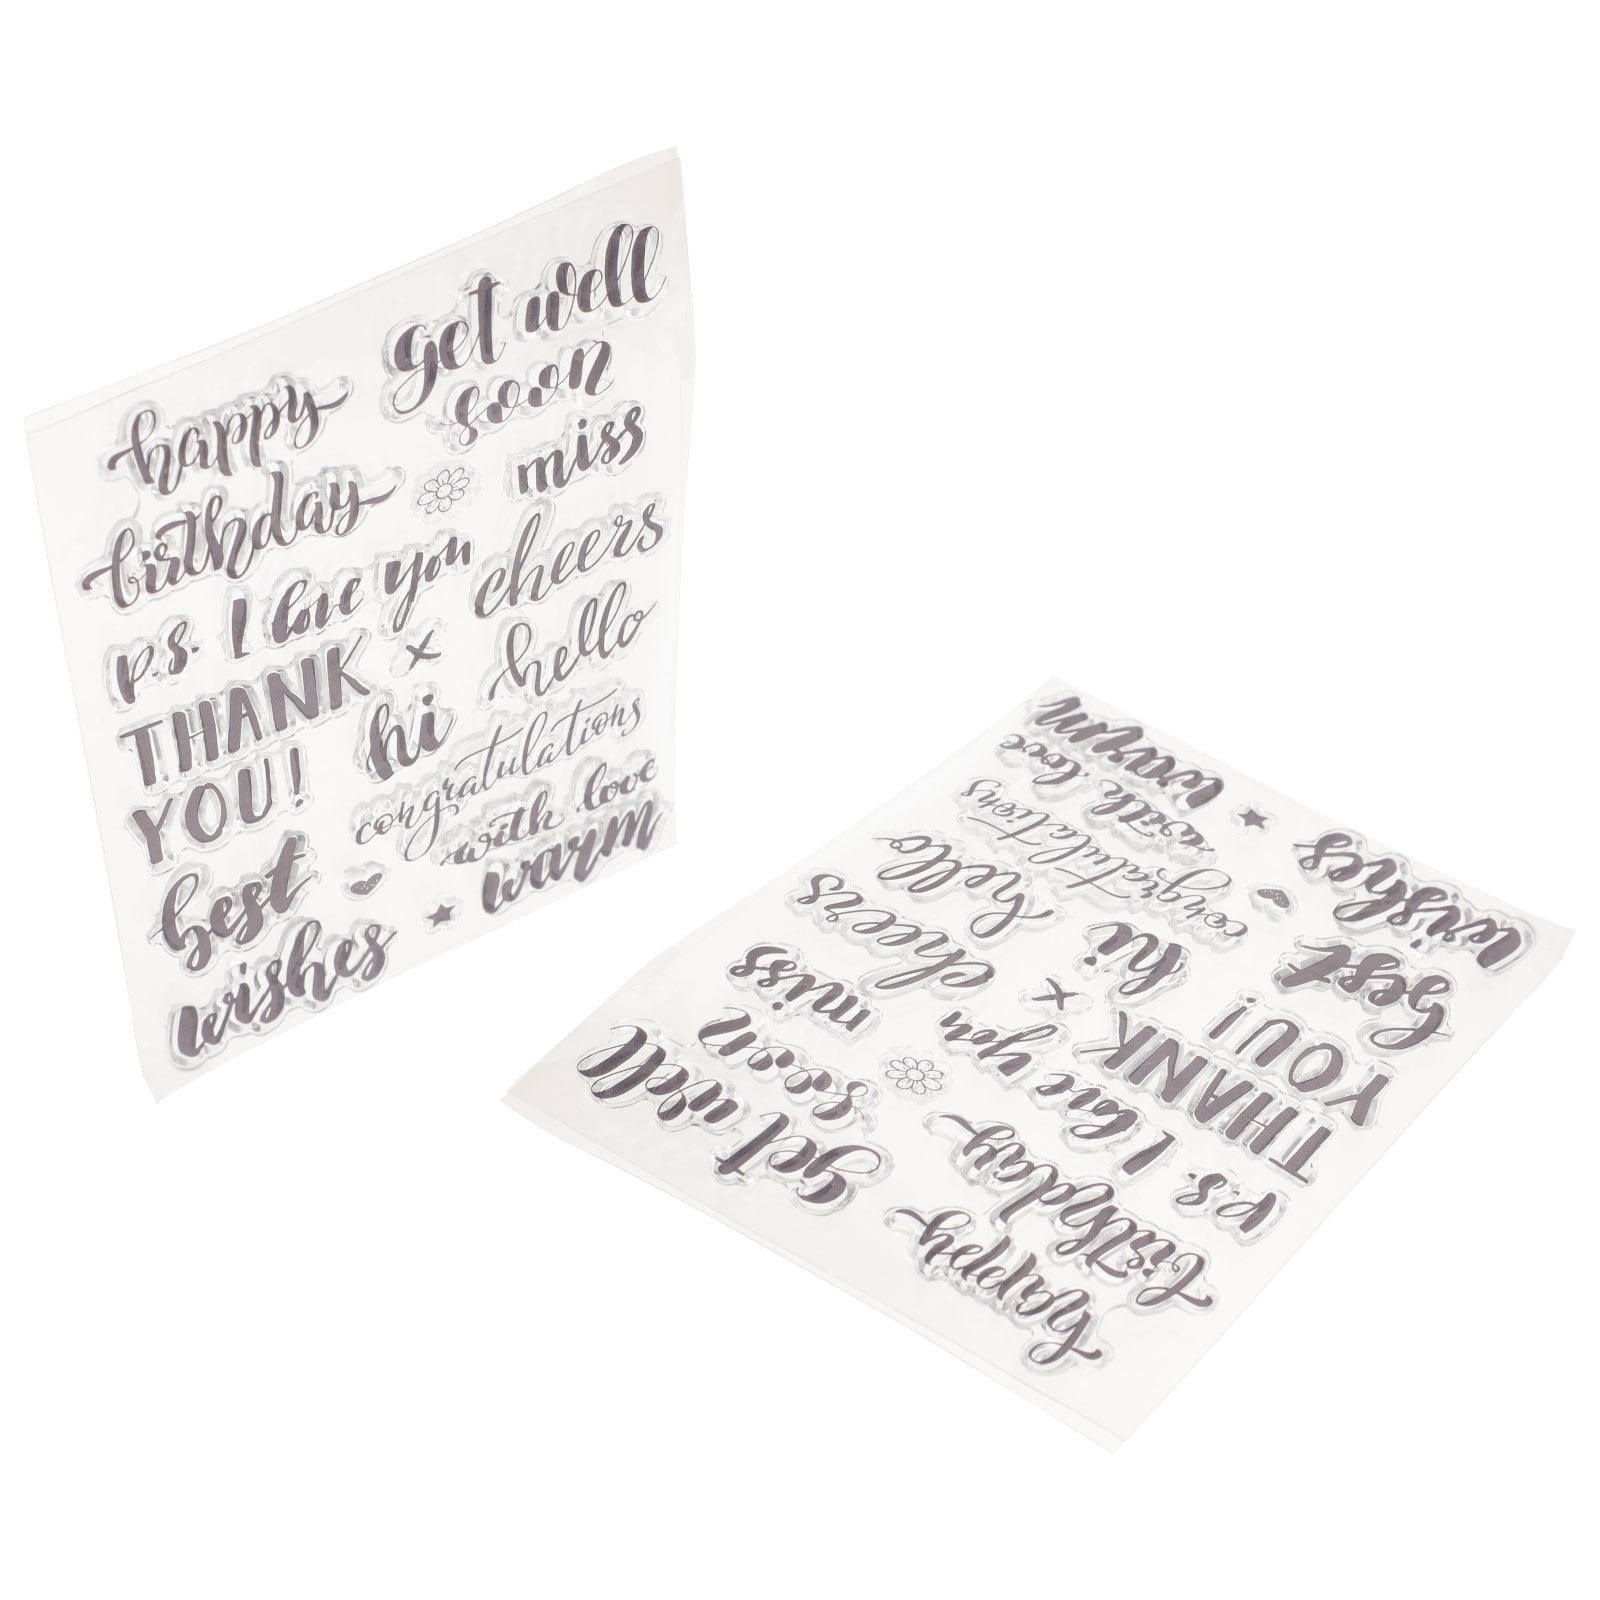 get well
soon
happy
birthday
miss
p.s. I love you
cheers
THANK
YOU!
x
hello
hi
congratulations
with love
warm
best
wishes
warm
with love
congratulations
hello
cheers
miss
soon
get well
wishes
best
hi
x
THANK
YOU!
p.s. I love you
happy
birthday